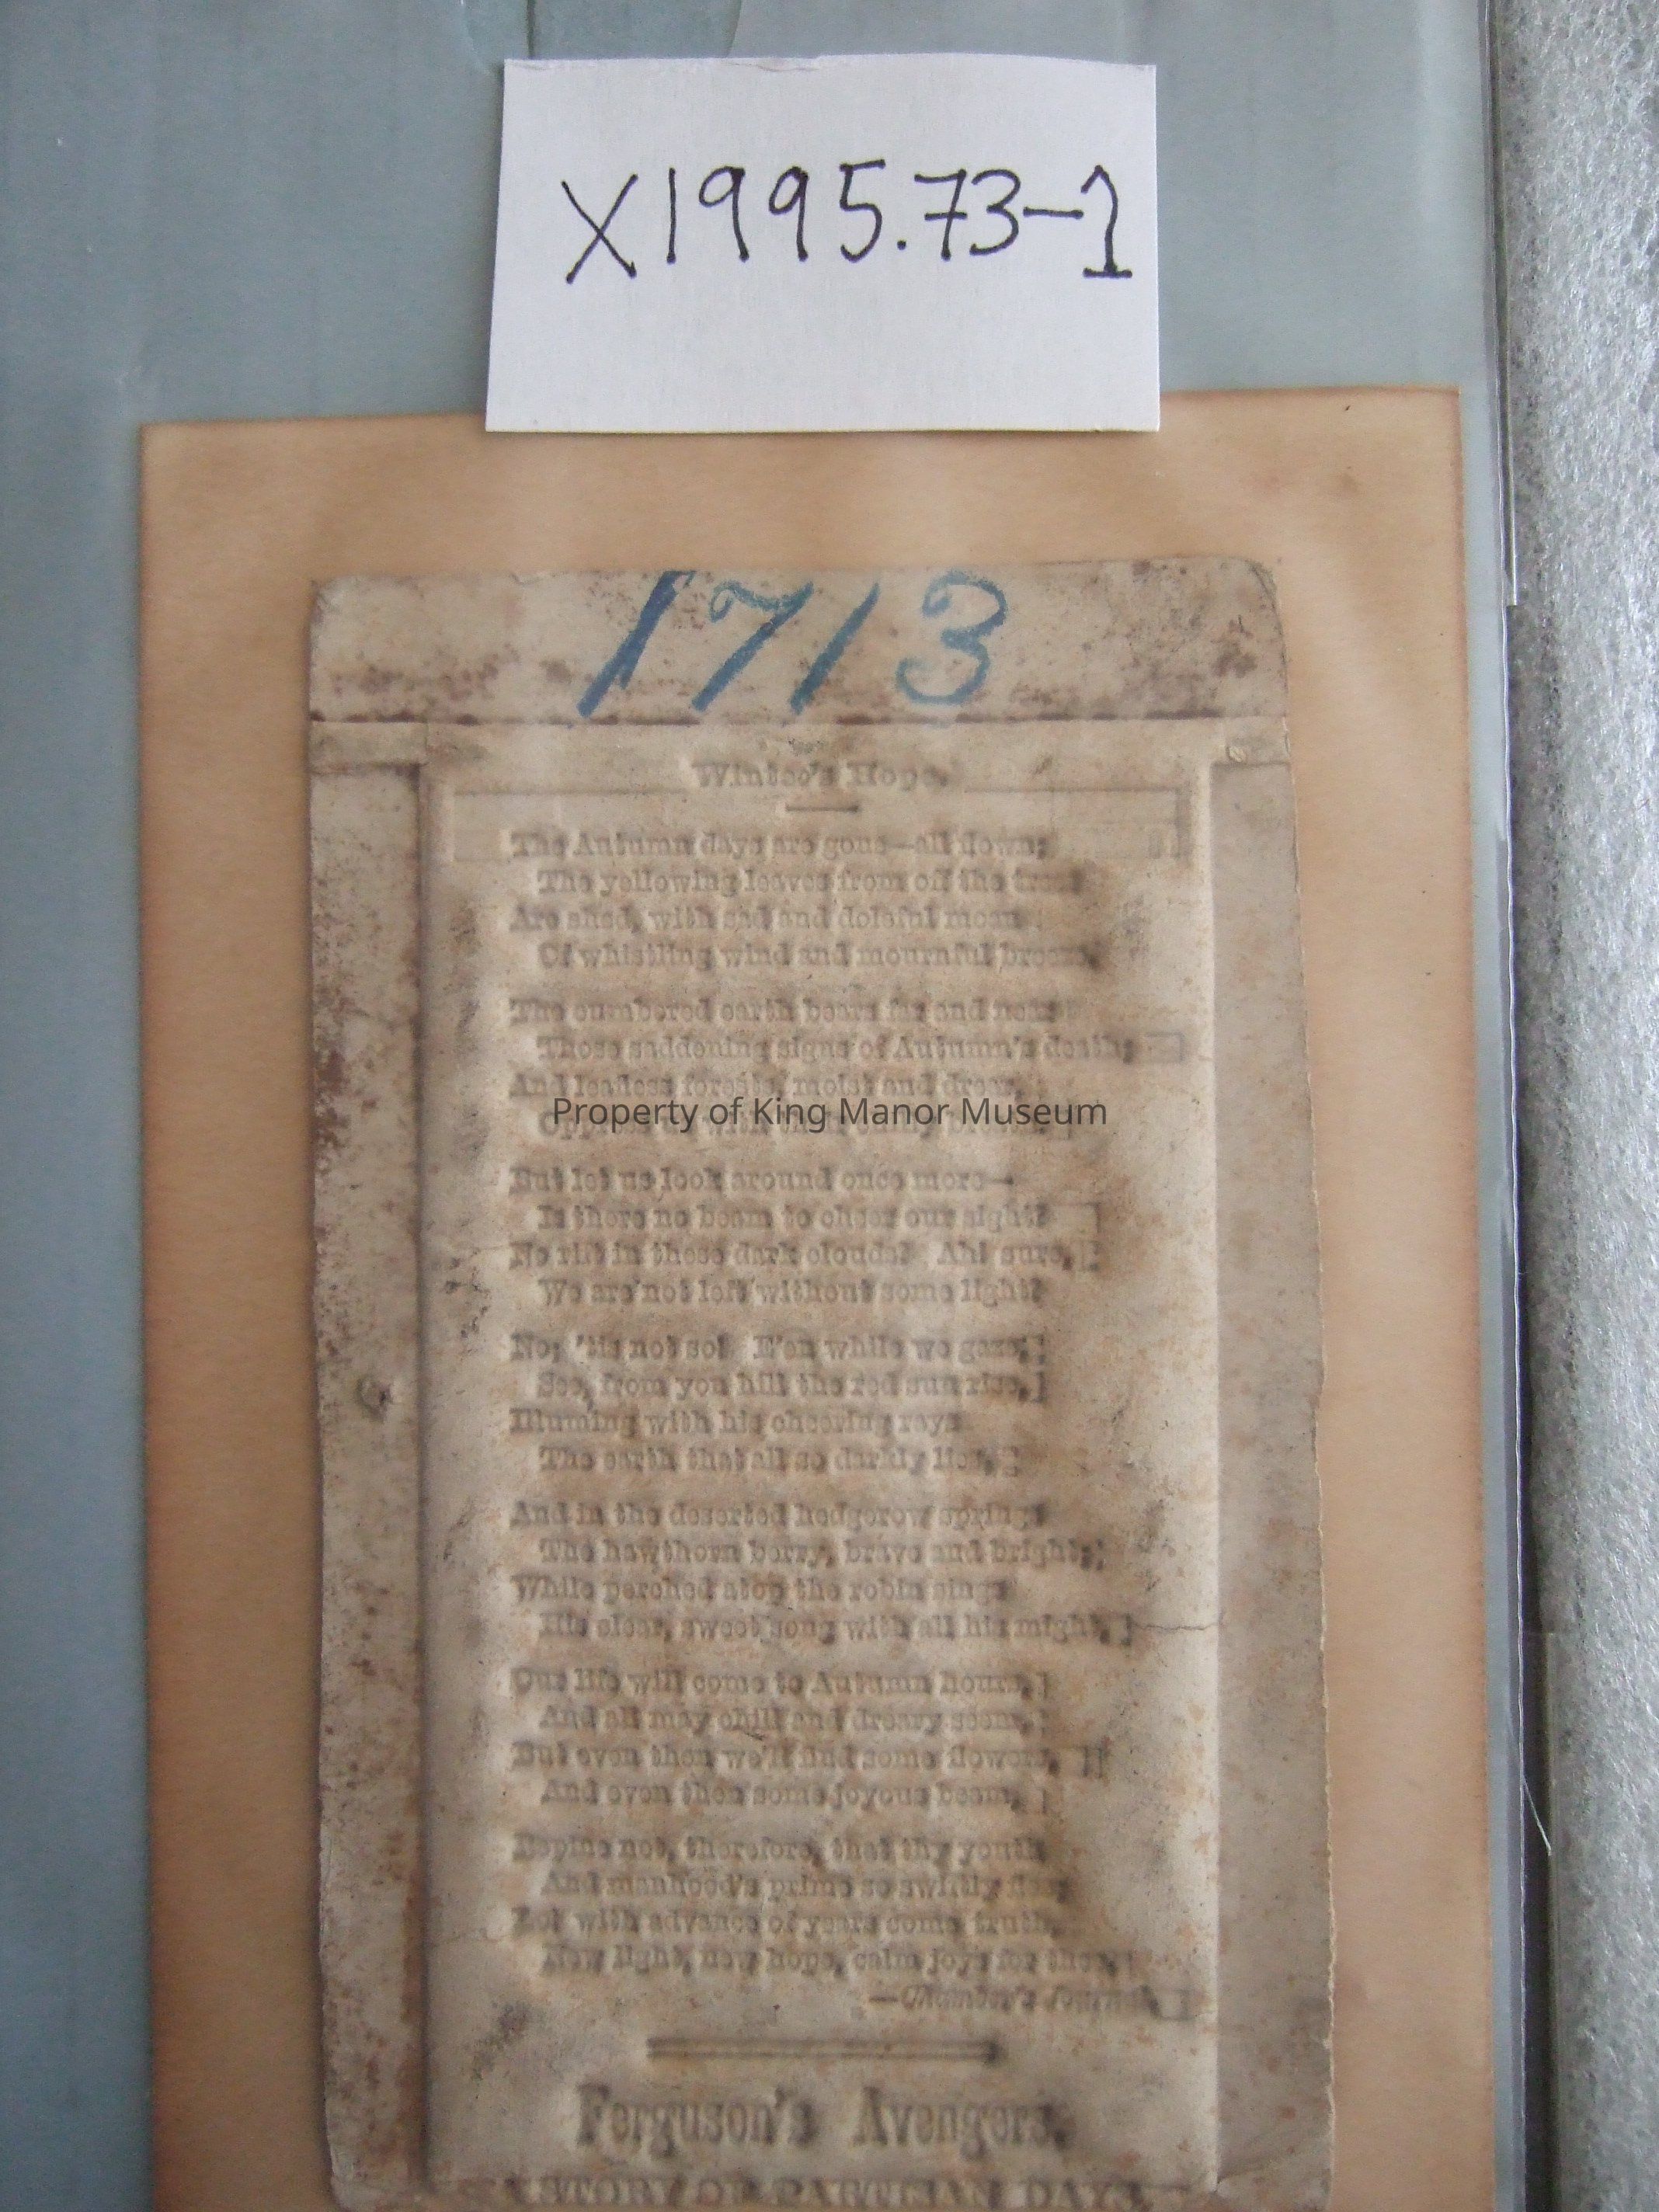 X1995.73-1
1713
Winter's Hope.
The Autumn days are gone—all flown;
The yellowing leaves from off the trees
Are shed, with sad and doleful moan
Of whistling wind and mournful breeze.
The cumbered earth bears far and near
Those saddening signs of Autumn's death;
And leafless forests, moist and drear,
Property of King Manor Museum
But let us look around once more—
Is there no beam to cheer our sight?
No rift in these dark clouds? Ah! sure,
We are not left without some light?
No; 'tis not so! E'en while we gaze,
See, from yon hill the red sun rise,
Illuming with his cheering rays
The earth that all so darkly lies.
And in the deserted hedgerow springs
The hawthorn berry, brave and bright;
While perched atop the robin sings
His clear, sweet song with all his might.
Our life will come to Autumn hours,
And all may chill and dreary seem,
But even then we'll find some flowers,
And even then some joyous beam.
Repine not, therefore, that thy youth
And manhood's prime so swiftly flee;
Lo! with advance of years come truth,
New light, new hope, calm joys for thee.
—Chamber's Journal.
Ferguson's Avengers.
A STORY OF PARTISAN DAYS.